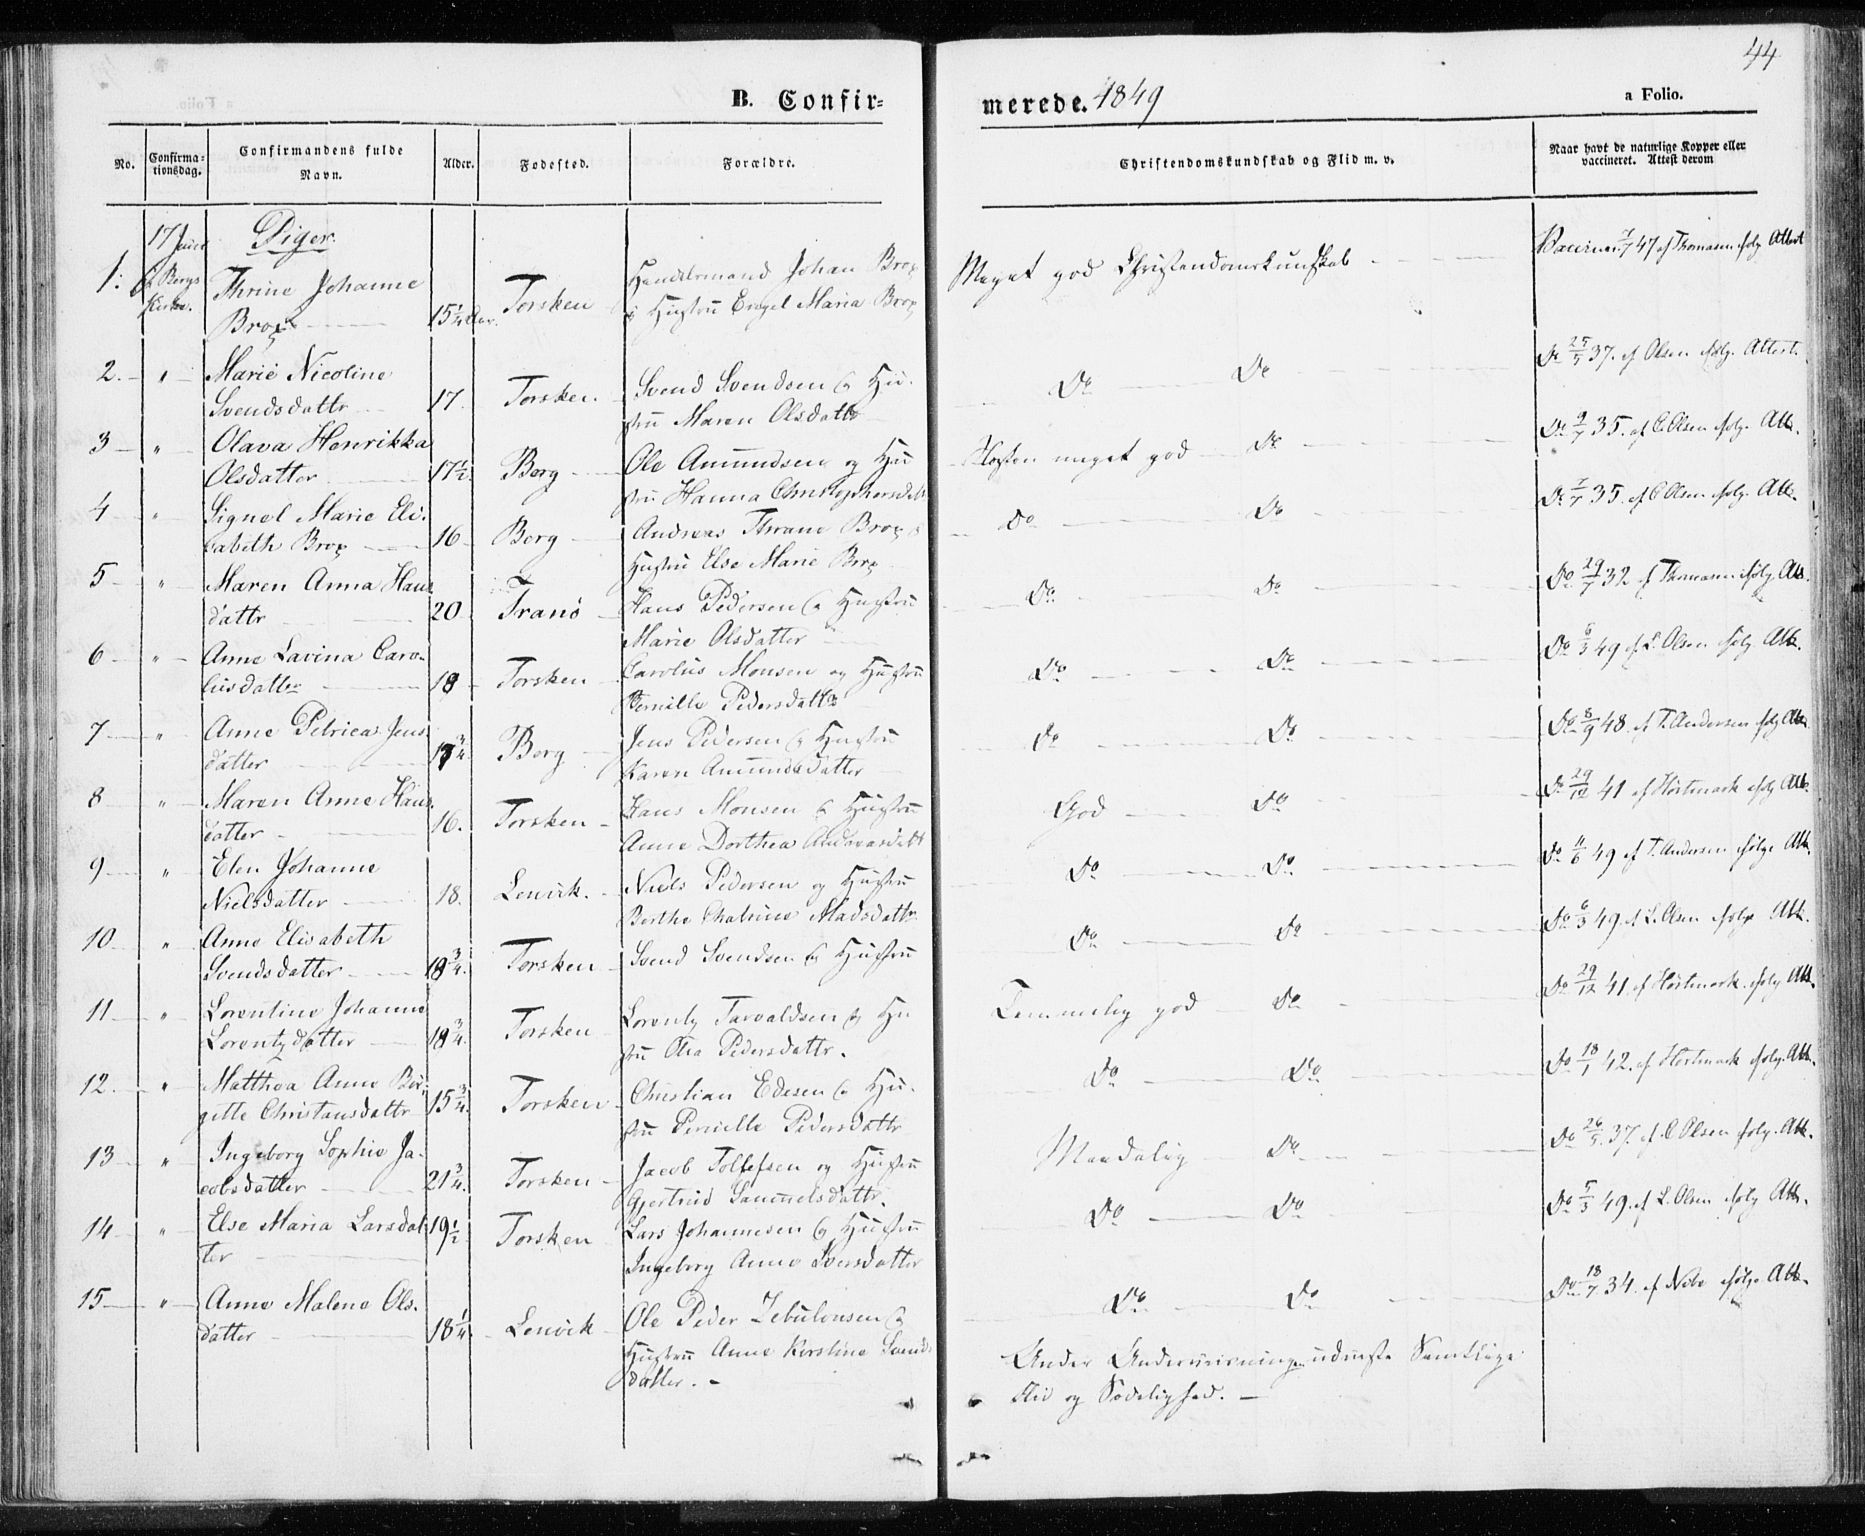 44
B. Confir-
merede. 1849
a Folio.
No.
Confirma-
tionsdag.
Confirmandens fulde
Navn.
Alder.
Fodested.
Forældre.
Christendomskundskab og Flid m. v.
Naar havt de naturlige Kopper eller
vaccineret. Attest derom
17 Juni Piger.
Bergs
Kirke.
1. Thrine Johanne
Brox 15 1/4 Aar. Torsken
Handelsmand Johan Brox
Hustru Engel Maria Brox
Meget god Christendomskundskab
Vaccineret 47 af Thomasen ifølg Attest
2. " Marie Nicoline
Svendsdattr 17. Torsken.
Svend Svendsen og Hu-
stru Maren Olsdattr
Do Do
Do 25/5 37. af Olsen ifølg. Attest.
3 " Olava Henrikka
Olsdatter 17 1/2. Berg
Ole Amundsen og Hu
stru Hanna Christophersdatt
Næsten meget god Do
Do 9/7 35. af C. Olsen ifølg. Att.
4 " Signel Marie Eli-
sabeth Brox 16 Berg
Andreas Thrane Brox &
Hustru Else Marie Brox
Do Do
Do 7/7 35. af C Olsen ifølg. Att.
5 " Maren Anna Hans
dattr 20 Tranö
Hans Pedersen og Hustru
Marie Olsdatter
Do Do
Do 29/7 32 af Thomasen ifølg. Att.
6 " Anne Lavina Caro-
liusdatter 18 Torsken
Carolus Monsen og Hustru
Pernille Pedersdattr
Do Do
Do 6/3 49 af L. Olsen ifølg. Att.
7 " Anne Petrica Jens
datter 3/4 Berg
Jens Pedersen og Hustru
Karen Amundsdatter
Do Do
Do 8/9 48. af T. Andersen ifølg Att.
8 " Maren Anne Hans
datter 16. Torsken
Hans Monsen og Hustru
Anne Dorthea
God Do
Do 29/12 41 af Hortmark ifølg Att.
9 " Elen Johanne
Nielsdatter 18. Lenvik.
Niels Pedersen og Hustru
Berthe Chatrine Madsdattr
Do Do
Do 11/6 49 af T. Andersen ifølge Att.
10 " Anne Elisabeth
Svendsdatter 18 3/4. Torsken
Svend Svendsen og Hustru
Do Do
Do 6/3 49. af L. Olsen ifølge Att.
11 " Lorentine Johanne
Lorentzdatter 18 3/4. Torsken
Lorentz Tarvaldsen og Hu
stru Olea Pedersdattr.
Temmelig god Do
Do 29/12 41. af Hortmark. ifølg Att.
12. " Matthea Anne Bir-
gitte Christansdattr 15 3/4. Torsken
Christian Edisen og Hu-
stru Pernille Pedersdattr
Do Do
Do 18/1 42. af Hortmark ifølg. Att.
13 " Ingeborg Sophie Ja-
cobsdatter 21 3/4. Torsken
Jacob Tollefsen og Hustru
Gjertrud Samuelsdattr.
Maadelig Do
Do 26/5. 37. af C Olsen ifølg. Att.
14 " Else Maria Larsdat-
ter 19 1/2 Torsken
Lars Johannesen og Hustru
Ingeborg Anne Iversdatter
Do Do
Do 5/3 49. af L. Olsen ifølg Att.
15 " Anne Malene Ols-
datter 18 1/4. Lenvik
Ole Peder Zebulonsen og
Hustru Anne Kirstine Svends
datter.
Do Do
Do 18/7 34. af Nebe ifølge Att.
Under Underviisningen udviiste Samtlige
Flid og Sædelighed.